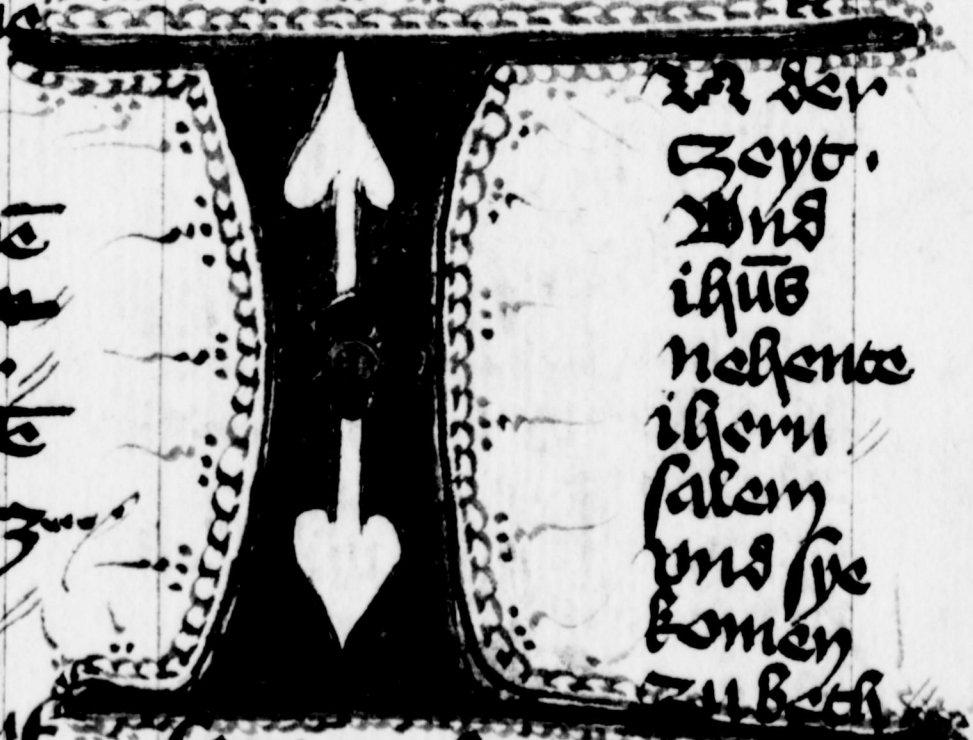 IN der
czeyt.
Vnd
ihūs
nehente
iheru
salem
vnd sye
komen
zu beth